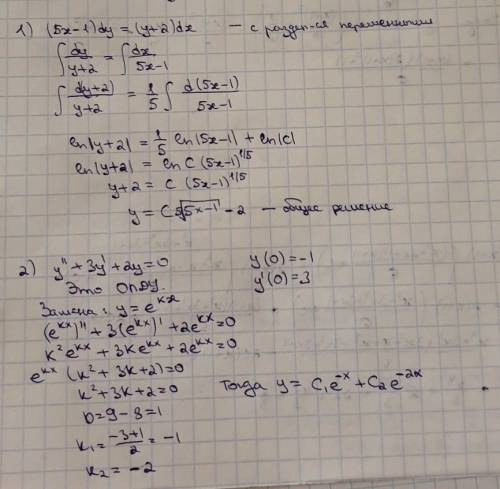 1) (5x-1)dy = (y+2)dx — с раздел-ся переменными
∫ dy/y+2 = ∫ dx/5x-1
∫ d(y+2)/y+2 = 1/5 ∫ d(5x-1)/5x-1
ln|y+2| = 1/5 ln|5x-1| + ln|C|
ln|y+2| = ln C (5x-1)^1/5
y+2 = C (5x-1)^1/5
y = C ⁵√5x-1 - 2 — общее решение
2) y'' + 3y' + 2y = 0
y(0) = -1
Это ОЛДУ.
y'(0) = 3
Замена: y = e^kx
(e^kx)'' + 3(e^kx)' + 2e^kx = 0
k² e^kx + 3k e^kx + 2e^kx = 0
e^kx (k² + 3k + 2) = 0
k² + 3k + 2 = 0
Тогда y = C₁e^-x + C₂e^-2x
D = 9 - 8 = 1
k₁ = -3+1/2 = -1
k₂ = -2